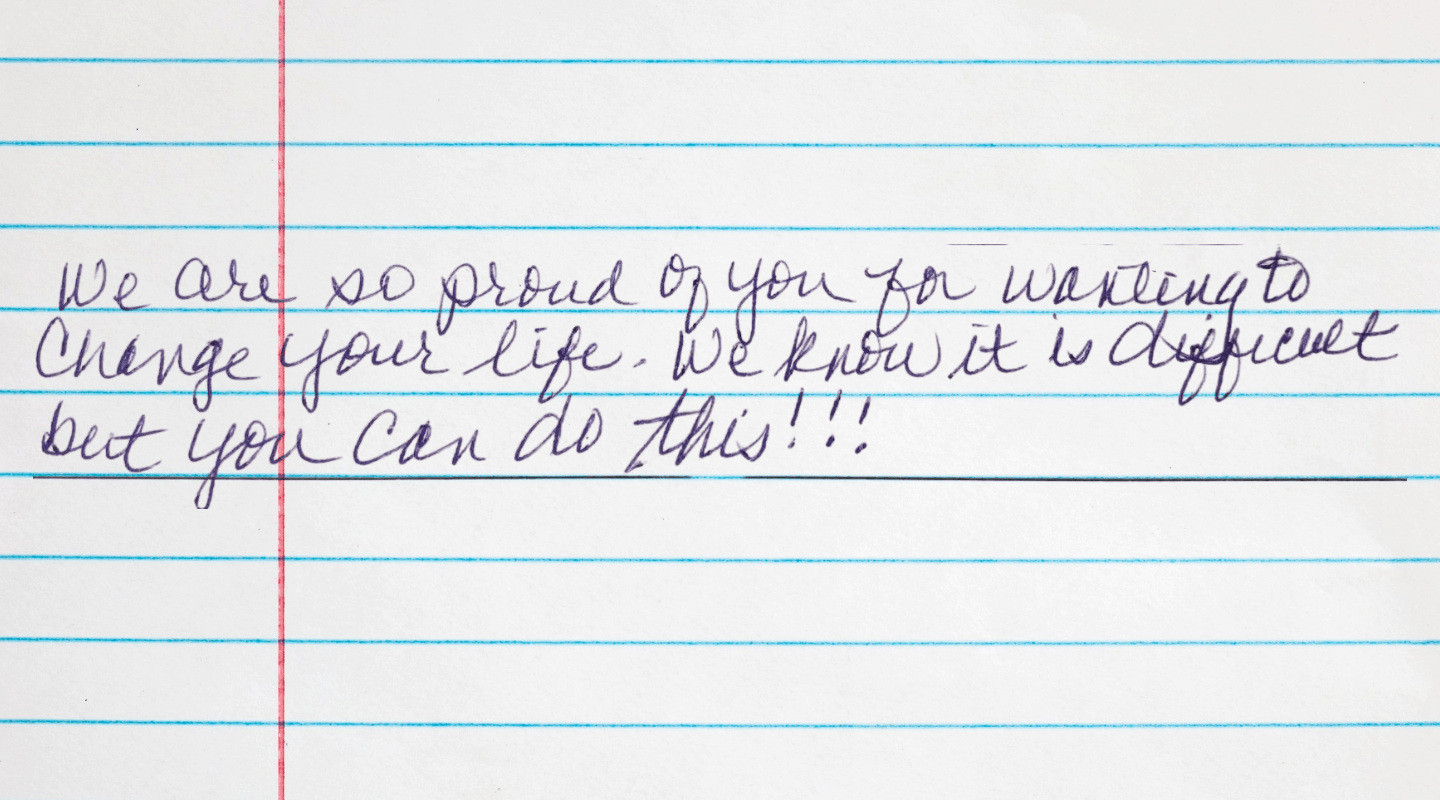 We are so proud of you for wanting to
Change your life. We know it is difficult
but you can do this!!!